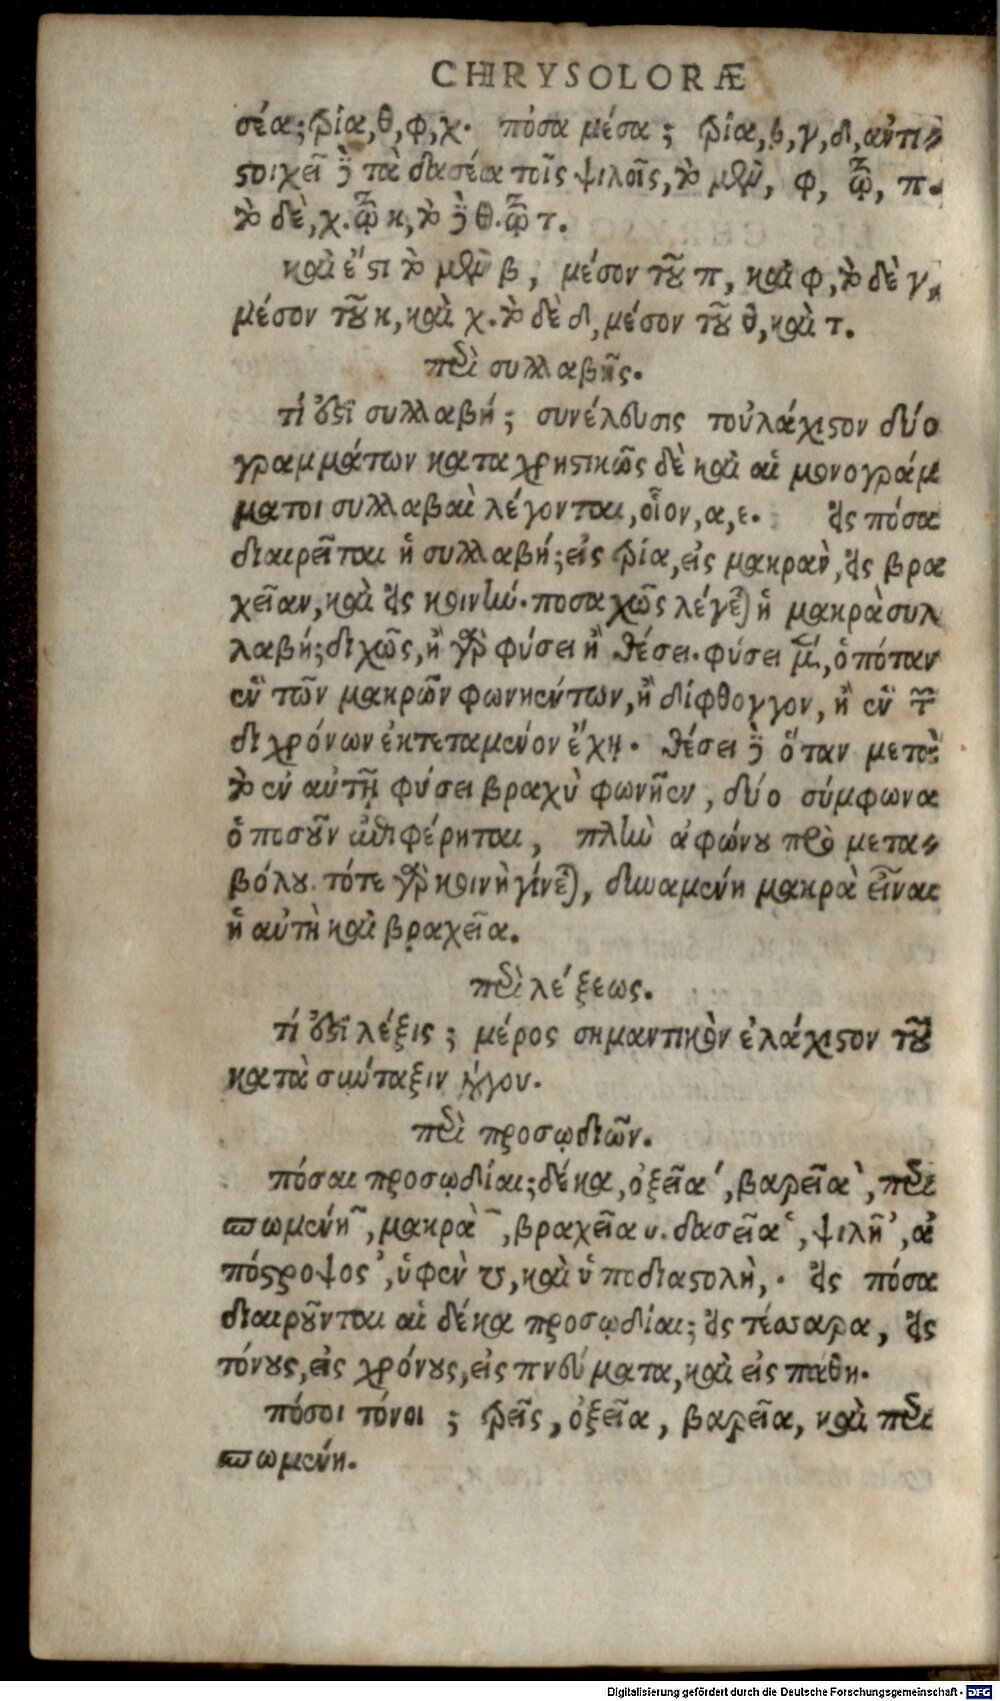 CHRYSOLORÆ
σέα; τρία, θ, φ, χ. πόσα μέσα; τρία, β, γ, δ, ἀντι-
στοιχεῖ δὲ τὰ δασέα τοῖς ψιλοῖς, τὸ μὲν, φ, τῷ, π.
τὸ δὲ, χ. τῷ κ, τὸ δὲ θ. τῷ τ.
καὶ ἔστι τὸ μὲν β, μέσον τοῦ π, καὶ φ, τὸ δὲ γ,
μέσον τοῦ κ, καὶ χ. τὸ δὲ δ, μέσον τοῦ θ, καὶ τ.
περὶ συλλαβῆς.
τί ἐστὶ συλλαβή; συνέλευσις τοὐλάχιστον δύο
γραμμάτων καταχρηστικῶς δὲ καὶ αἱ μονογράμ
ματοι συλλαβαὶ λέγονται, οἷον, α, ε. εἰς πόσα
διαιρεῖται ἡ συλλαβή; εἰς τρία, εἰς μακρὰν, εἰς βρα
χεῖαν, καὶ εἰς κοινήν. ποσαχῶς λέγεται ἡ μακρὰ συλ
λαβή; διχῶς, ἢ γὰρ φύσει ἢ θέσει. φύσει μὲν, ὁπόταν
ἓν τῶν μακρῶν φωνηέντων, ἢ δίφθογγον, ἢ ἓν τῶν
διχρόνων ἐκτεταμένον ἔχῃ. θέσει δὲ ὅταν μετὰ
τὸ ἐν αὐτῇ φύσει βραχὺ φωνῆεν, δύο σύμφωνα
ὁποσοῦν ἐπιφέρηται, πλὴν ἀφώνου πρὸ μετα-
βόλου. τότε γὰρ κοινὴ γίνεται, δυναμένη μακρὰ εἶναι
ἡ αὐτὴ καὶ βραχεῖα.
περὶ λέξεως.
τί ἐστὶ λέξις; μέρος σημαντικὸν ἐλάχιστον τοῦ
κατὰ σύνταξιν λόγου.
περὶ προσῳδιῶν.
πόσαι προσῳδίαι; δέκα, ὀξεῖα ´, βαρεῖα `, περι
σπωμένη ῀, μακρὰ ¯, βραχεῖα ᴗ. δασεῖα ῾, ψιλῆ ᾿, ἀ
πόστροφος ’, ὑφὲν ‿, καὶ ὑποδιαστολὴ, . εἰς πόσα
διαιροῦνται αἱ δέκα προσῳδίαι; εἰς τέσσαρα, εἰς
τόνους, εἰς χρόνους, εἰς πνεύματα, καὶ εἰς πάθη.
πόσοι τόνοι; τρεῖς, ὀξεῖα, βαρεῖα, καὶ περι
σπωμένη.
Digitalisierung gefördert durch die Deutsche Forschungsgemeinschaft - DFG